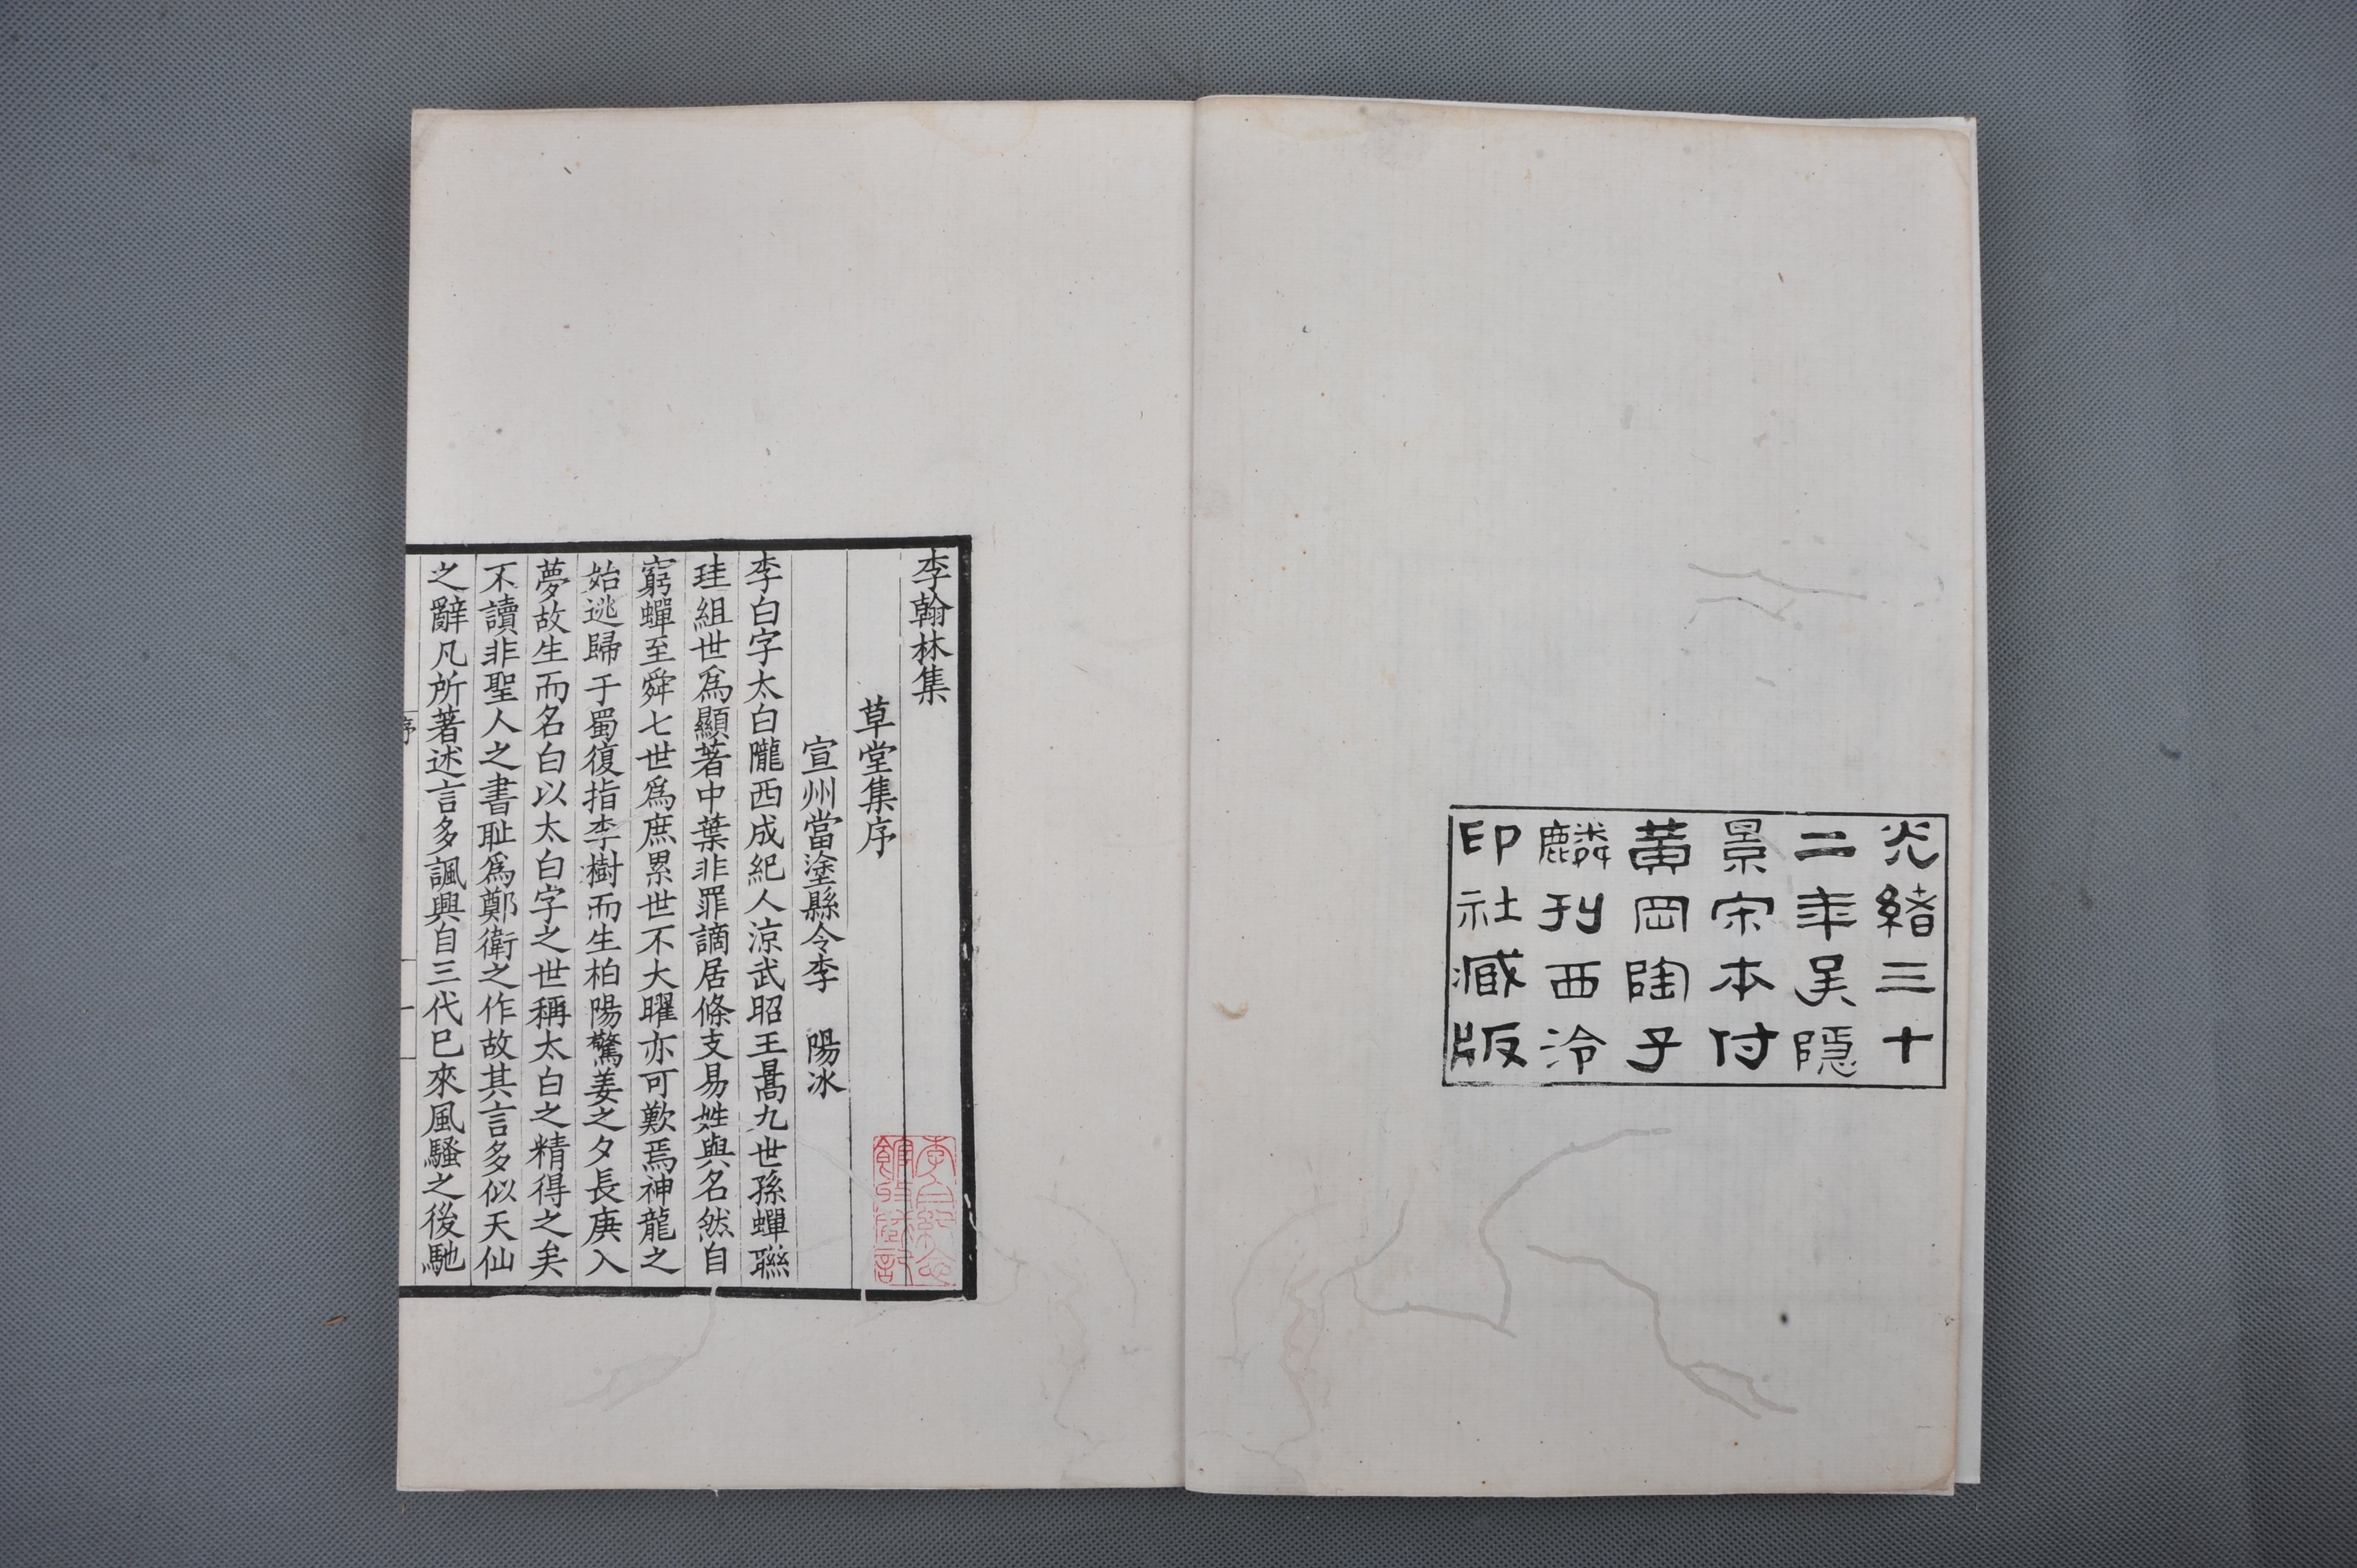 光緒三十
二年吴隱
景宋本付
黃岡陶子
麟刊西泠
印社臧版
李翰林集
草堂集序
宣州當塗縣令李 陽冰
李白字太白隴西成紀人涼武昭王暠九世孫蟬聯
珪組世爲顯著中葉非罪謫居條支易姓與名然自
窮蟬至舜七世爲庶累世不大曜亦可歎焉神龍之
始逃歸于蜀復指李樹而生柏陽驚姜之夕長庚入
夢故生而名白以太白字之世稱太白之精得之矣
不讀非聖人之書恥爲鄭衛之作故其言多似天仙
之辭凡所著述言多諷興自三代已來風騷之後馳
序
一
李白紀念
館收藏記